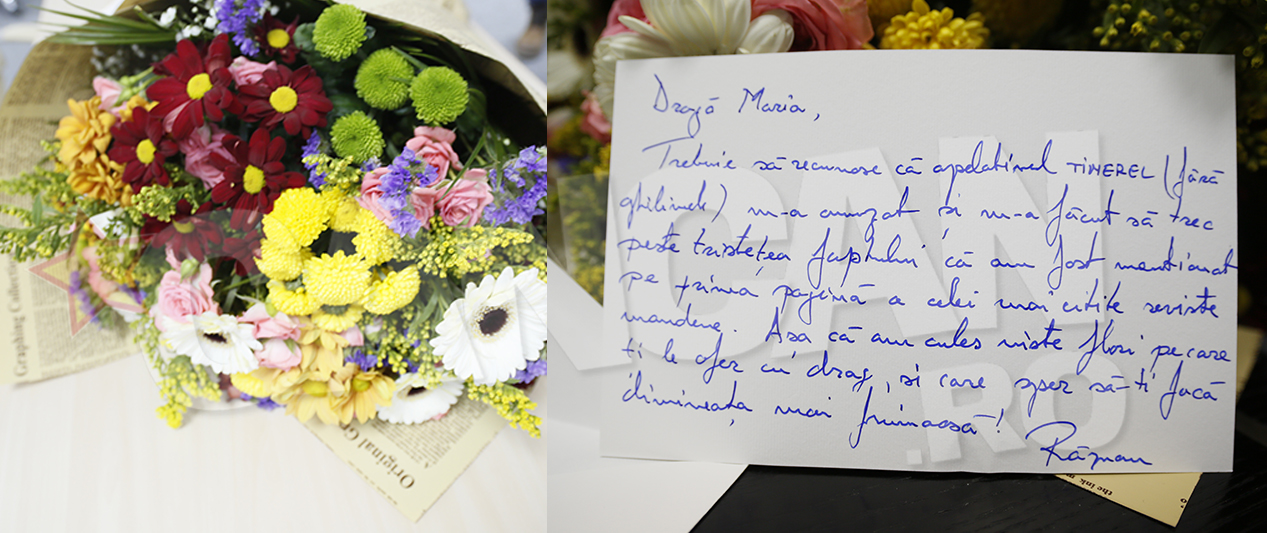 Graphing Collection
Original G
Dragă Maria,
Trebuie să recunosc că apelativul TINEREL (fără
ghilimele) m-a amuzat și m-a făcut să trec
peste tristețea faptului că am fost menționat
pe prima pagină a celei mai citite reviste
mondene. Așa că am cules niște flori pe care
ți le ofer cu drag, și care sper să-ți facă
dimineața mai frumoasă!
Răzvan
CAN
.RO
the ink